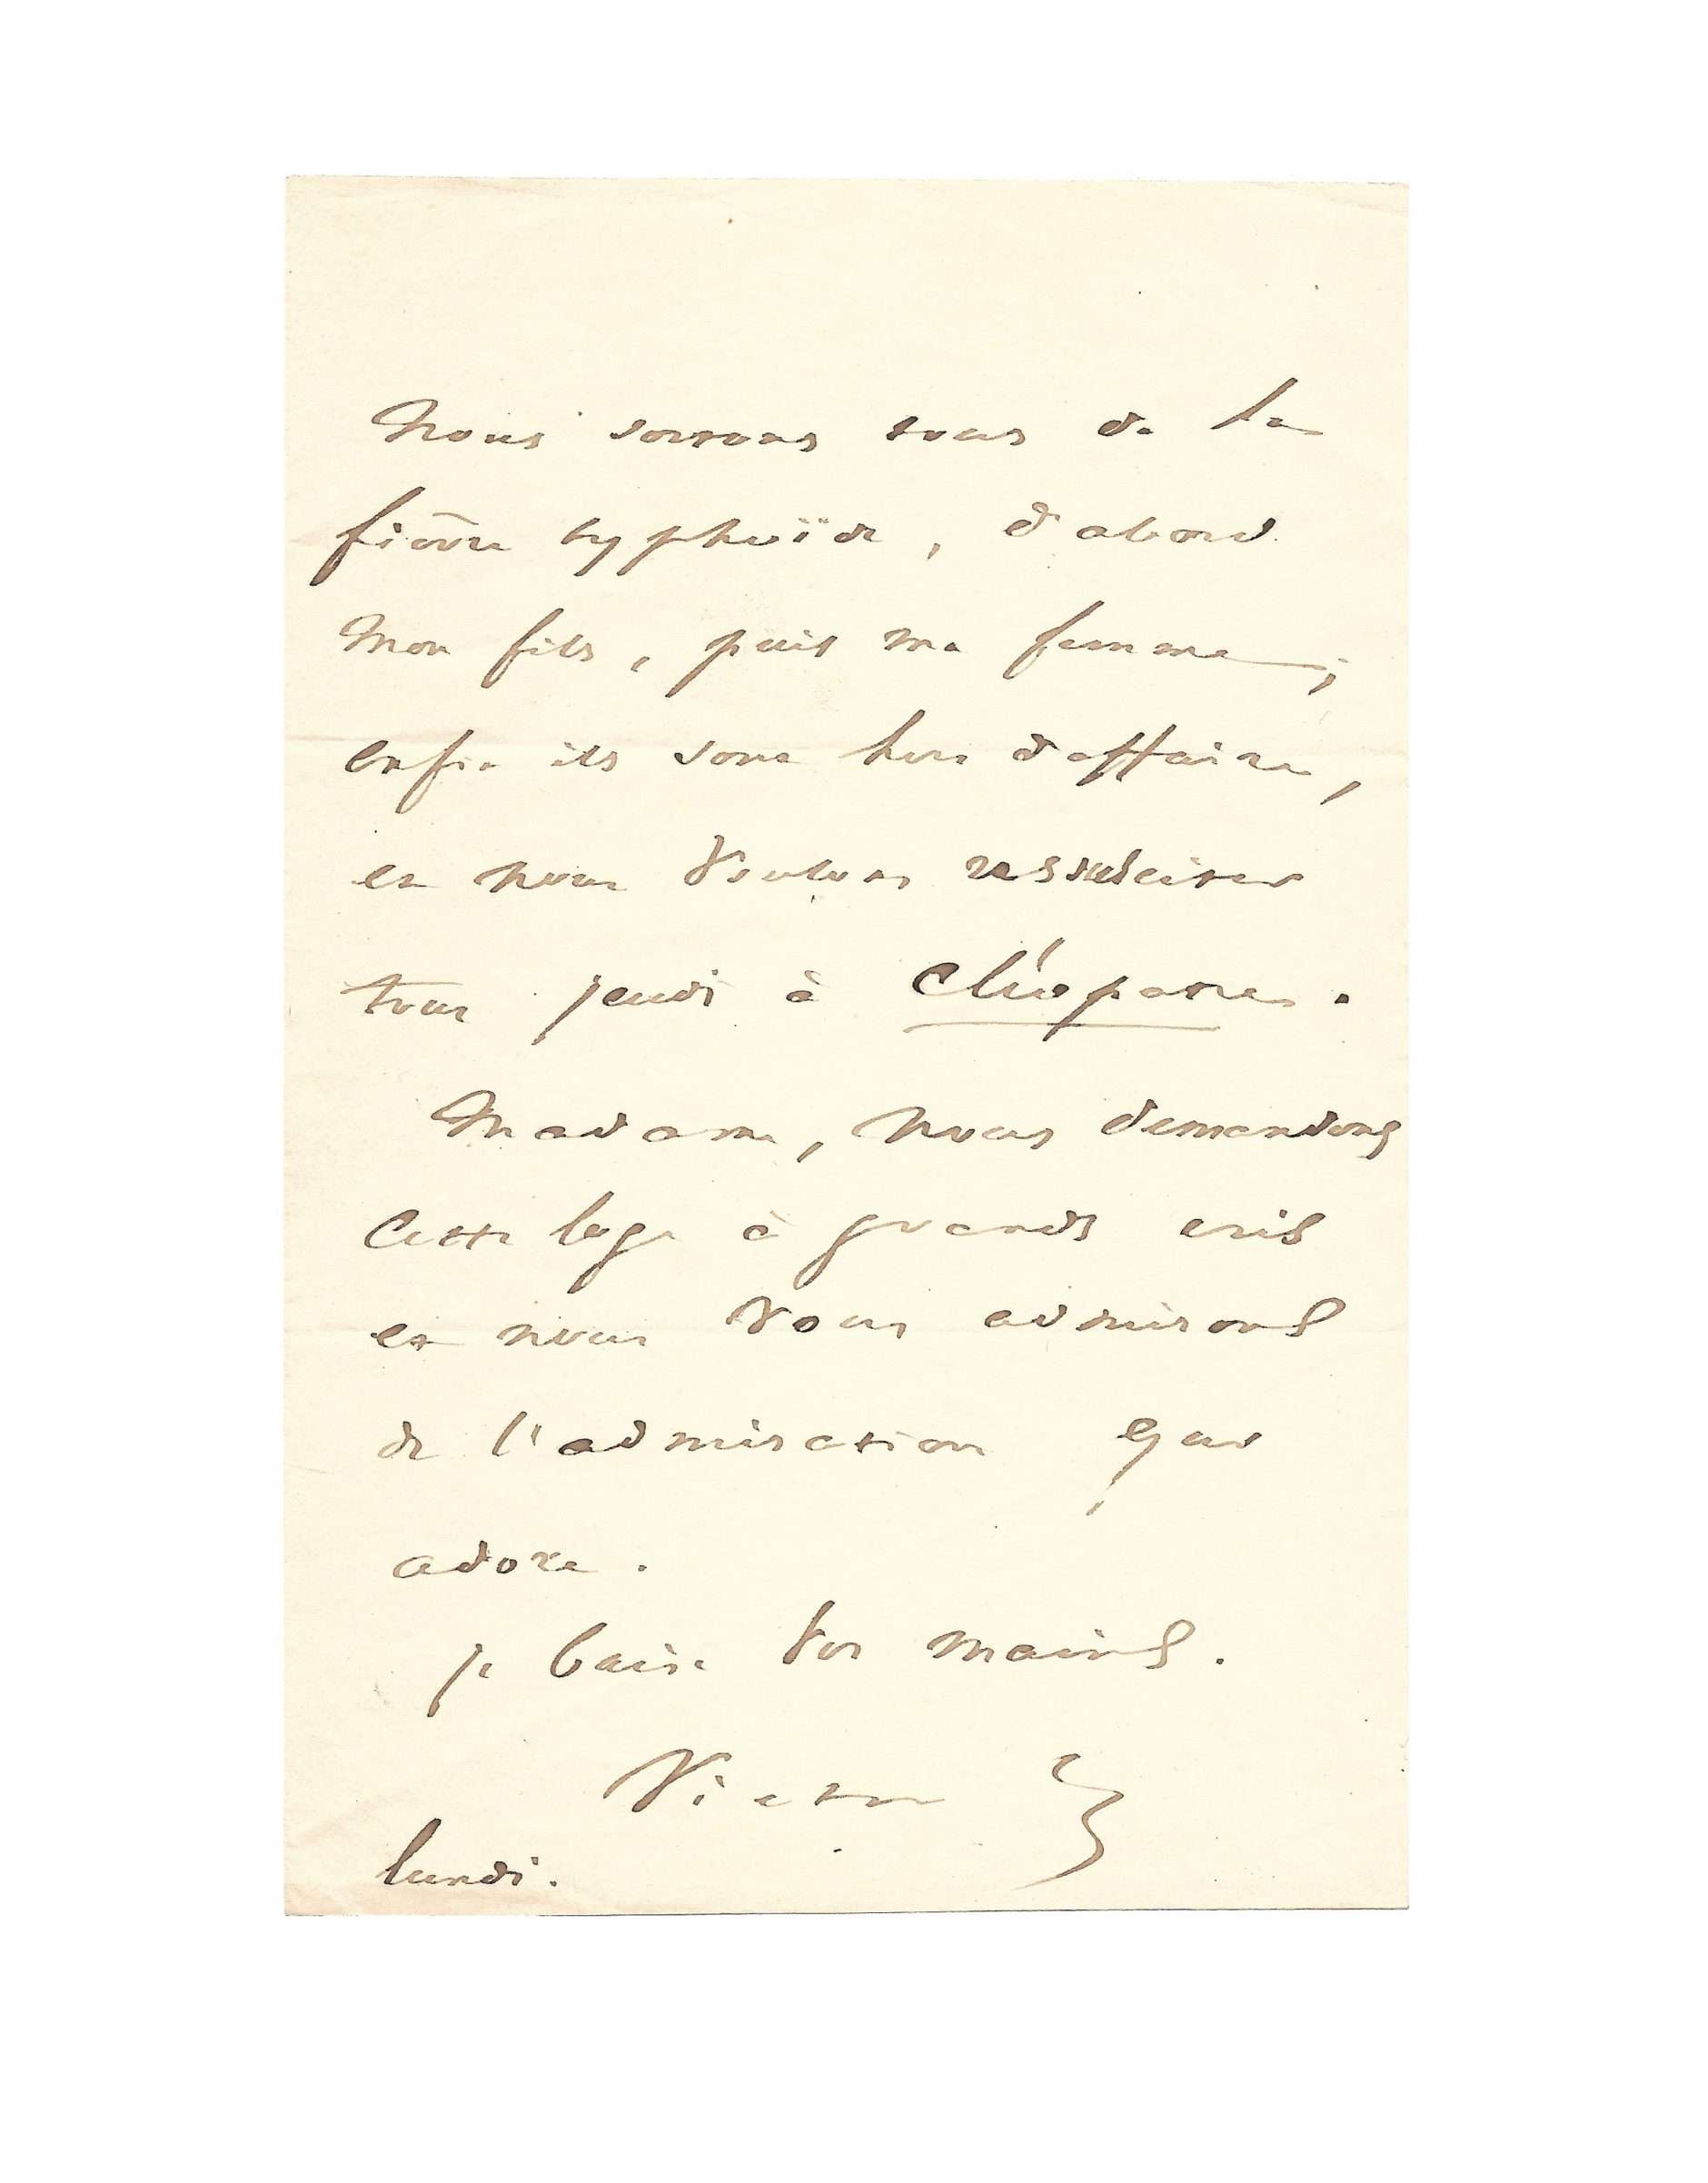 Nous sortons tous de la
fièvre typhoïde, d'abord
mon fils, puis ma femme ;
enfin ils sont hors d'affaire,
et nous voulons ressusciter
tous jeudi à Cléopatre.
Madame, nous demandons
cette loge à grands cris
et nous vous admirons
de l'admiration qui
adore.
je baise vos mains.
Victor
lundi.